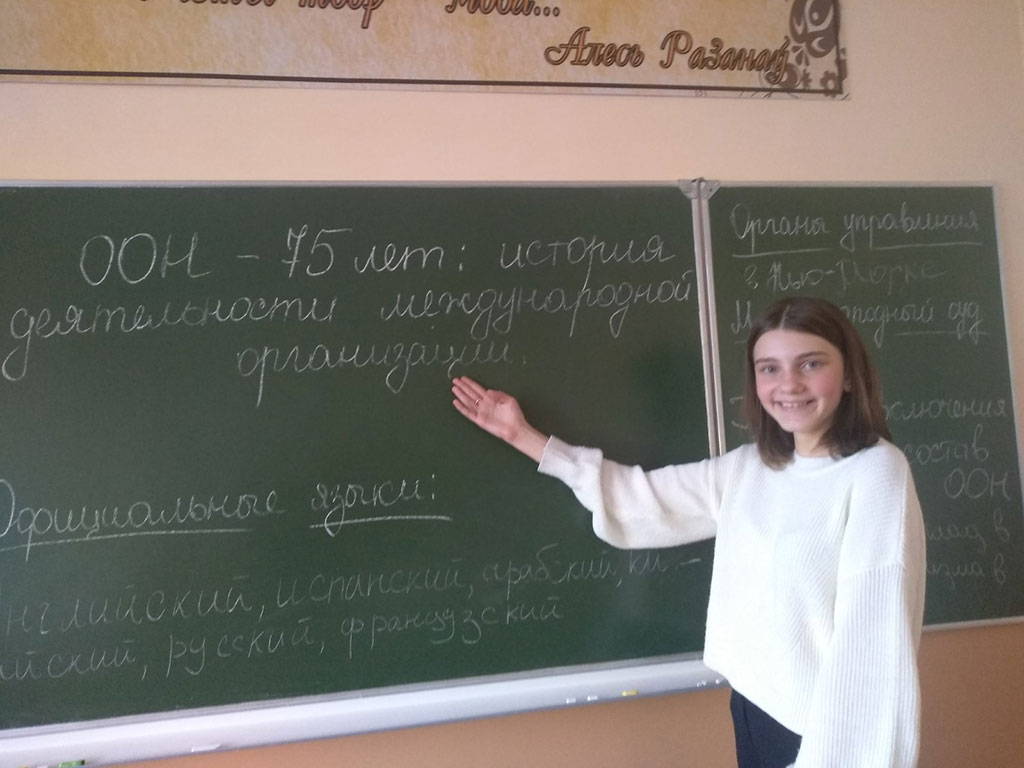 твор – мова...
Алесь Разанаў
ООН – 75 лет: история
деятельности международной
организации.
Официальные языки:
английский, испанский, арабский, ки-
йский, русский, французский
Органы управления
в Нью-Йорке
суд
включения
состав
ООН
в
в